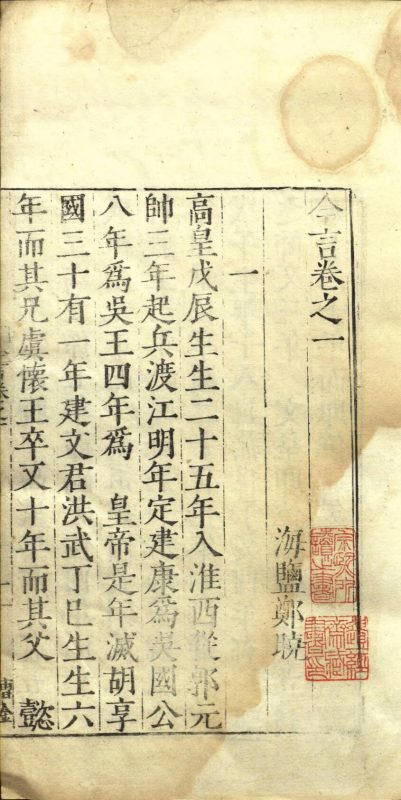 今言卷之一
海鹽鄭曉
一
高皇戊辰生生二十五年入淮西從郭元
帥三年起兵渡江明年定建康爲吳國公
八年爲吳王四年爲 皇帝是年滅胡享
國三十有一年建文君洪武丁巳生生六
年而其兄虞懷王卒又十年而其父 懿